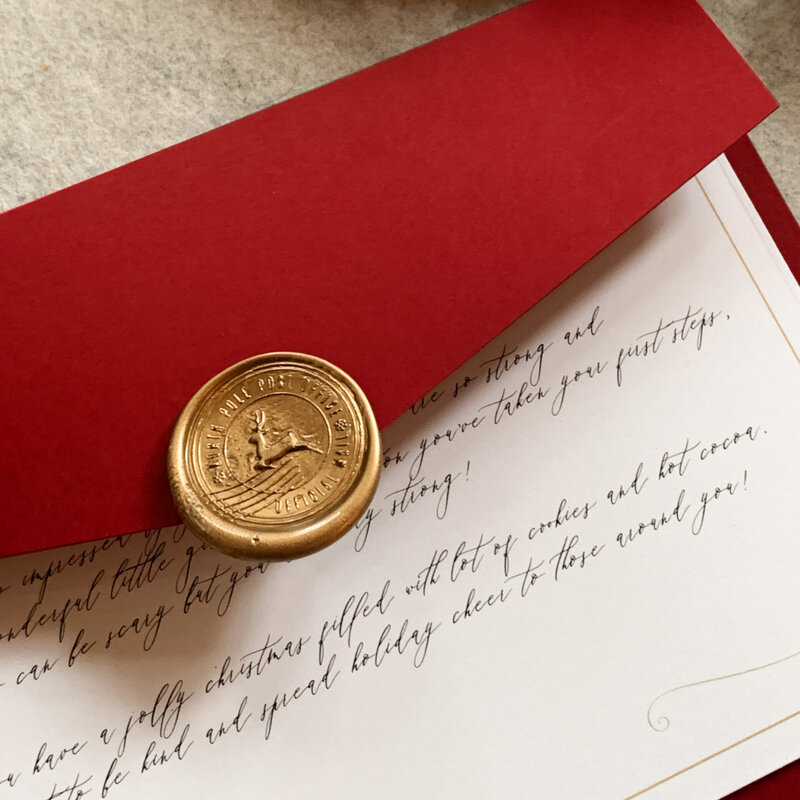 NORTH POLE POST OFFICE
OFFICIAL MAIL
impressed of are so strong and
wonderful little you've taken your first steps,
can be scary but you strong!
have a jolly christmas filled with lot of cookies and hot cocoa.
to be kind and spread holiday cheer to those around you!